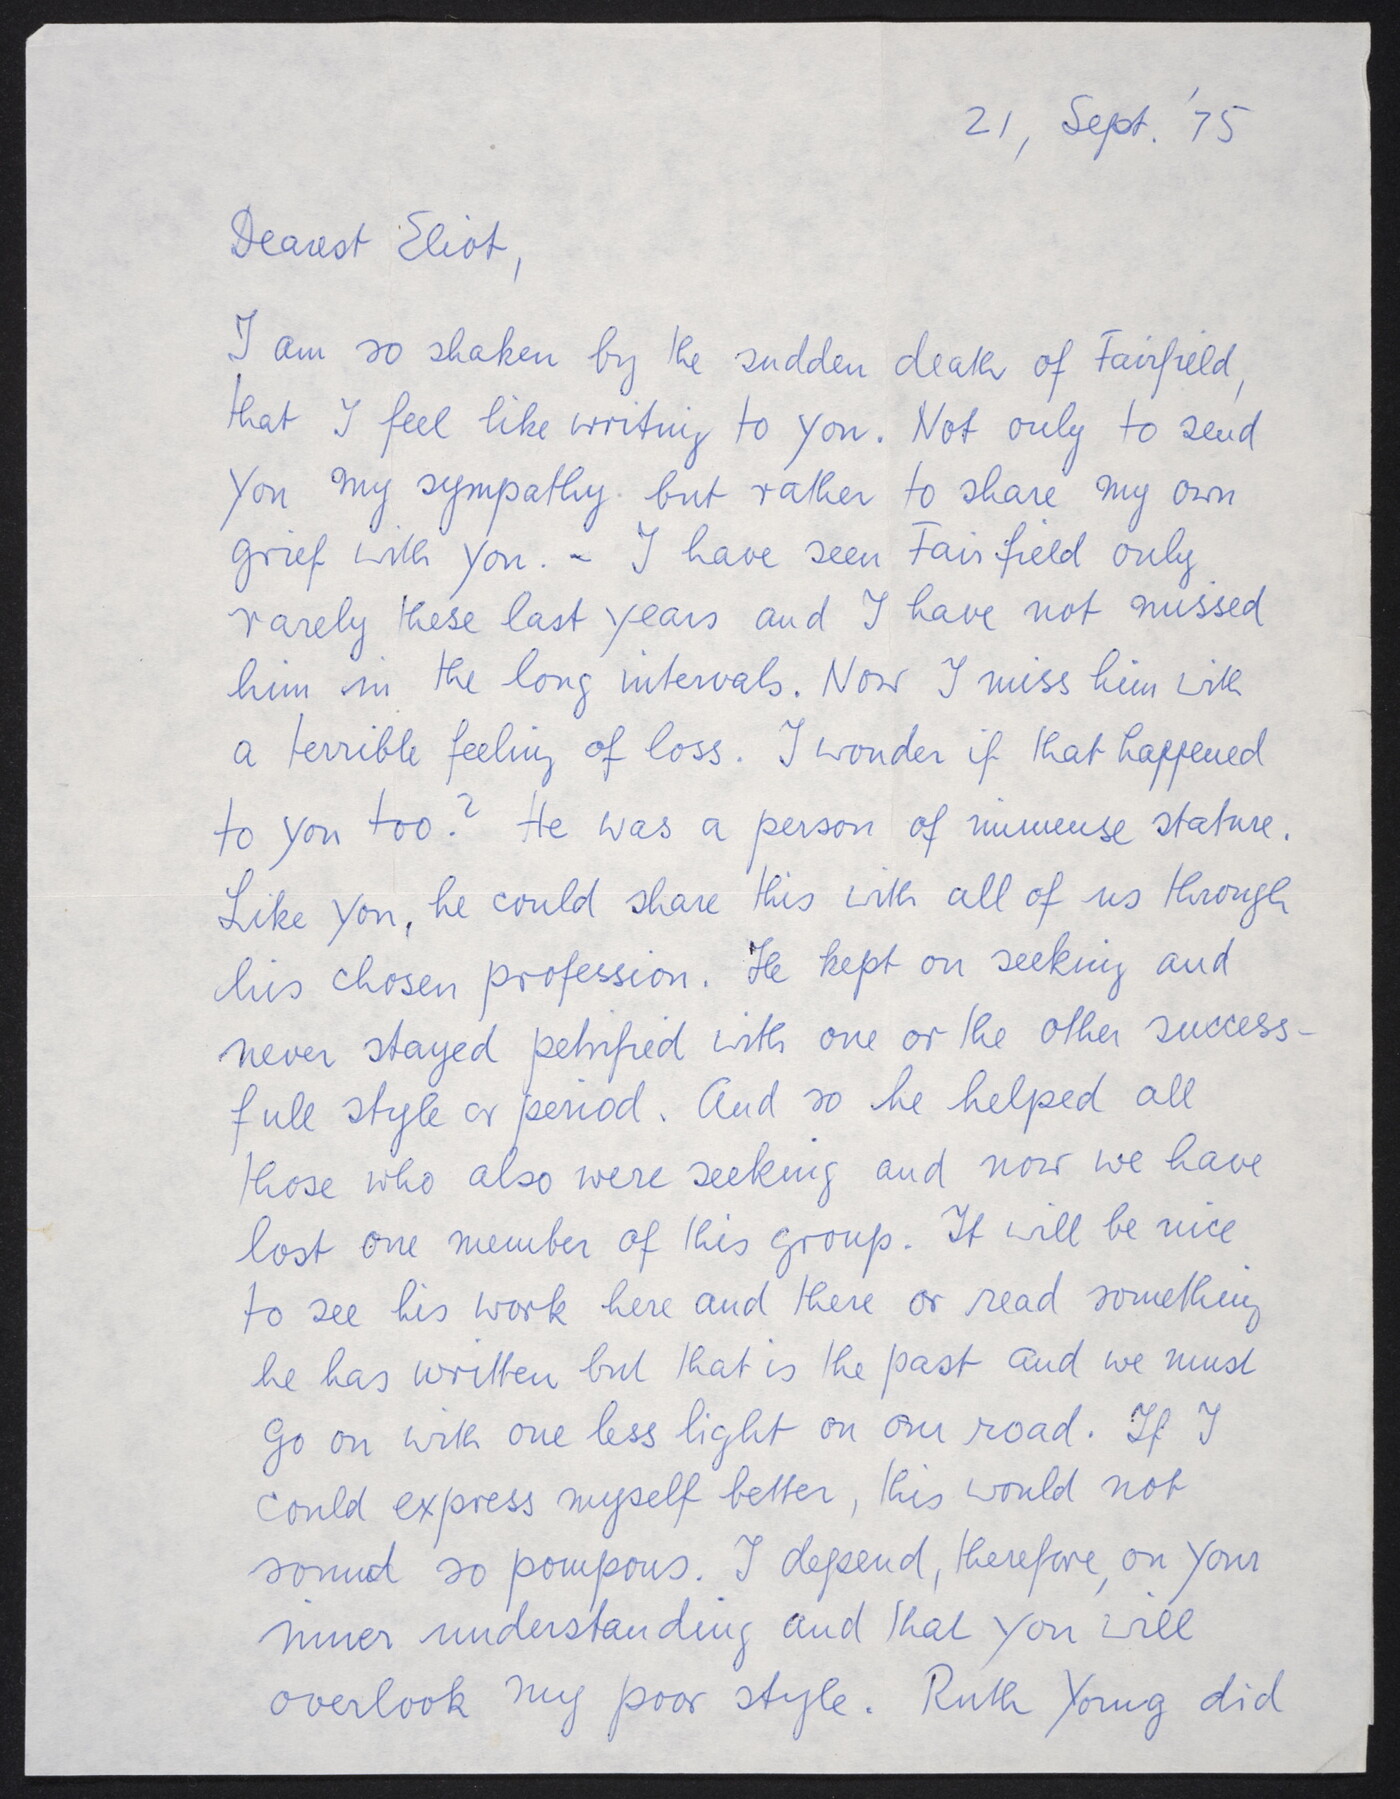 21, Sept. '75
Dearest Eliot,
I am so shaken by the sudden death of Fairfield,
that I feel like writing to you. Not only to send
you my sympathy but rather to share my own
grief with you. – I have seen Fairfield only
rarely these last years and I have not missed
him in the long intervals. Now I miss him with
a terrible feeling of loss. I wonder if that happened
to you too? He was a person of immense stature.
Like you, he could share this with all of us through
his chosen profession. He kept on seeking and
never stayed petrified with one or the other success-
full style or period. And so he helped all
those who also were seeking and now we have
lost one member of this group. It will be nice
to see his work here and there or read something
he has written but that is the past and we must
go on with one less light on our road. If I
could express myself better, this would not
sound so pompous. I depend, therefore, on your
inner understanding and that you will
overlook my poor style. Ruth Young did